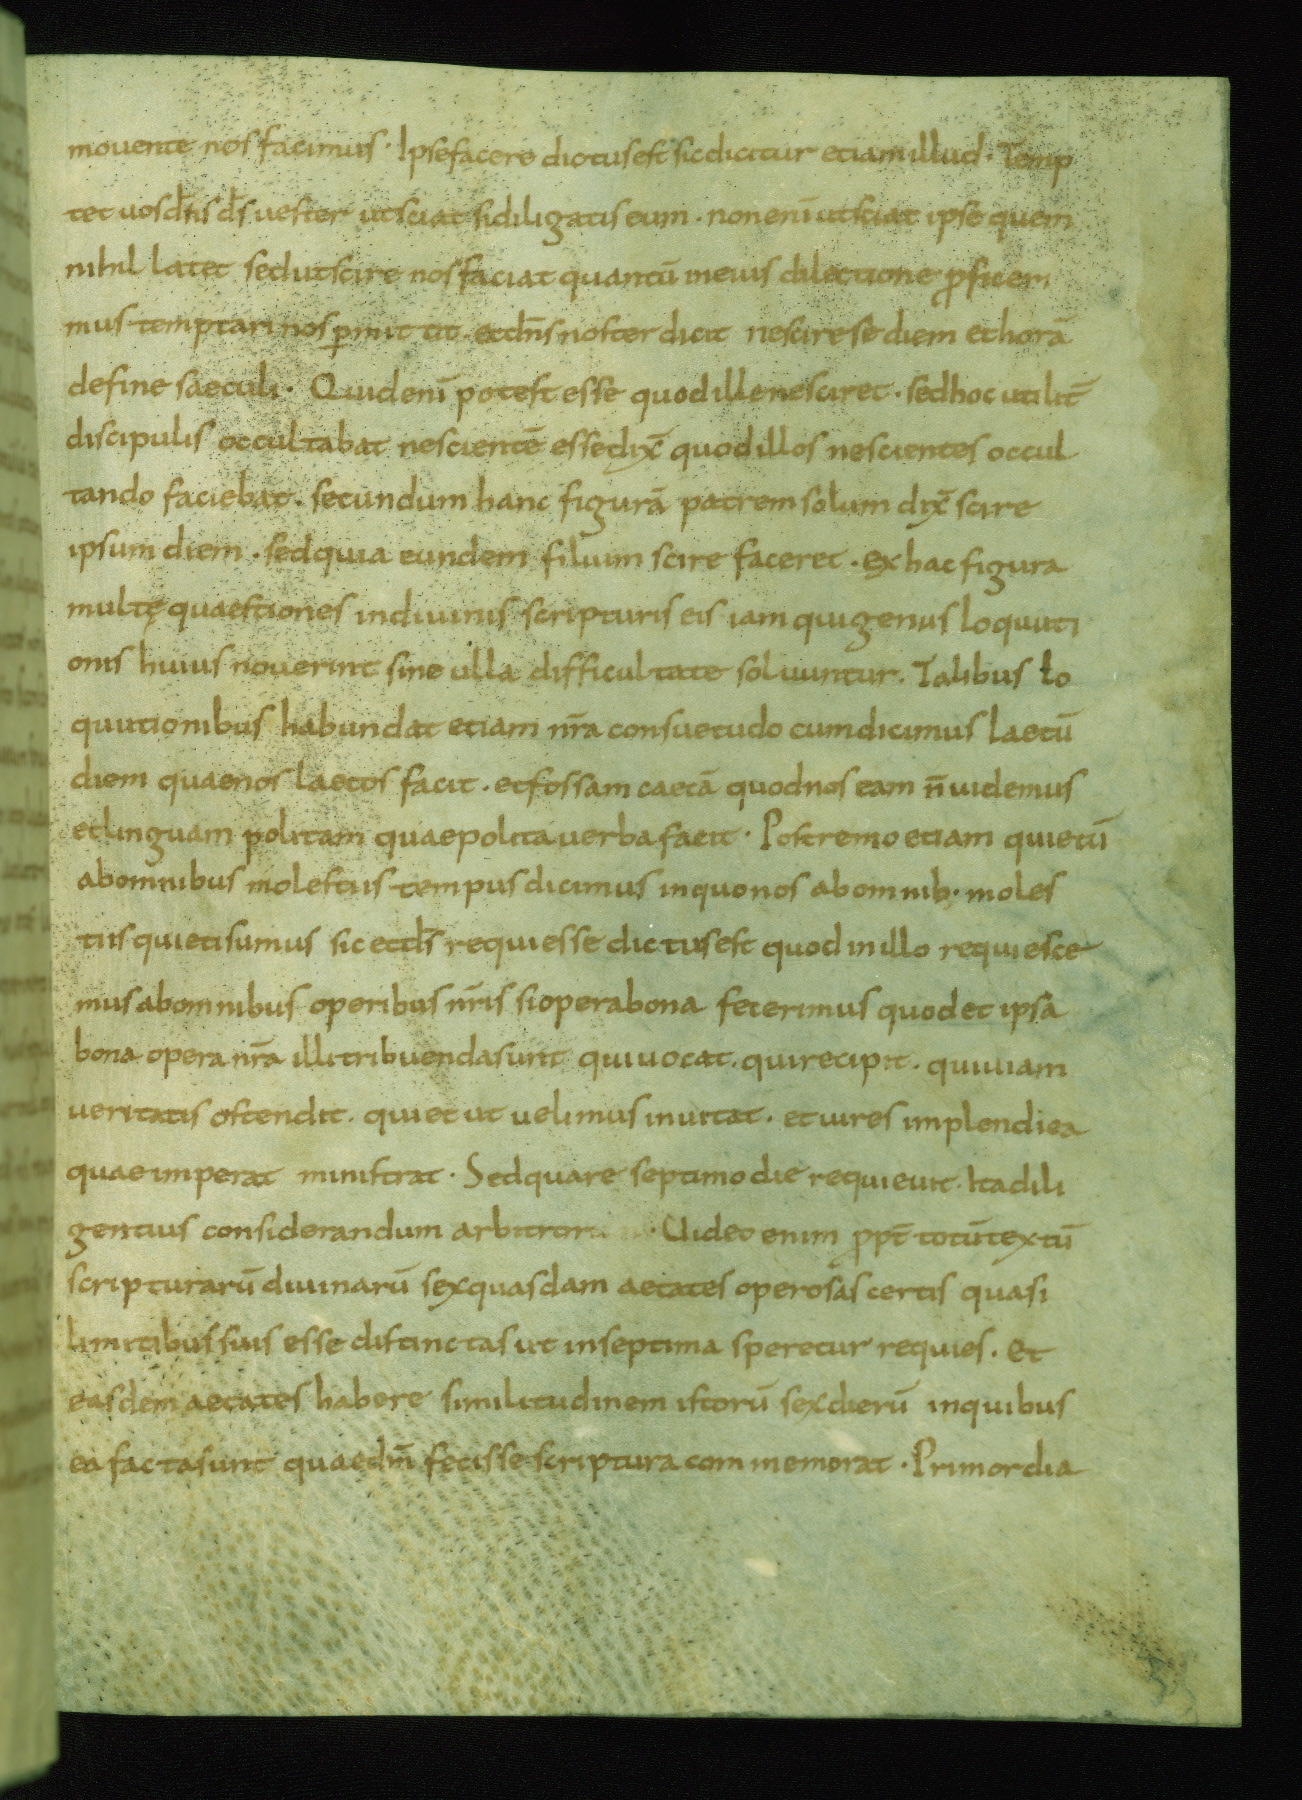 mouente nos facimus · Ipse facere dictus est sic dicitur etiam illud · Temp
tet uos dn̄s d̄s uester ut sciat si diligatis eum · non enī ut sciat ipse quem
nihil latet sed ut scire nos faciat quantū in eius dilectione ꝓficeri
mus temptari nos ꝑmittit · et dn̄s noster dicit nescire se diem et horā
de fine saeculi · Quid enī potest esse quod ille nesciret · sed hoc utilit̄
discipulis occultabat nescientē esse dix̄ quod illos nescientes occul
tando faciebat · secundum hanc figurā patrem solum dix̄ scire
ipsum diem · sed quia eundem filium scire faceret · Ex hac figura
multę quaestiones in diuinis scripturis eis iam qui genus loquuti
onis huius nouerint sine ulla difficultate soluuntur. Talibus lo
quutionibus habundat etiam nr̄a consuetudo cum dicimus laetū
diem quae nos laetos facit · et fossam caecā quod nos eam n̄ uidemus
et linguam politam quae polita uerba facit · Postremo etiam quietū
ab omnibus molestiis tempus dicimus in quo nos ab omnib; moles
tiis quieti sumus sic et d̄s requiesse dictus est quod in illo requiesce
mus ab omnibus operibus nr̄is si opera bona fecerimus quod et ipsa
bona opera nr̄a illi tribuenda sunt qui uocat · qui recipit · qui uiam
ueritatis ostendit · qui et ut uelimus inuitat · et uires implendi ea
quae imperat ministrat · Sed quare septimo die requieuit · Ita dili
gentius considerandum arbitror · Uideo enim ꝓpt̄ totū textū
scripturarū diuinarū sex quasdam aetates operosas certis quasi
limitibus suis esse distinctas ut in septima speretur requies · Et
easdem aetates habere similitudinem istorū sex dierū in quibus
ea facta sunt quae dm̄ fecisse scriptura commemorat · Primordia